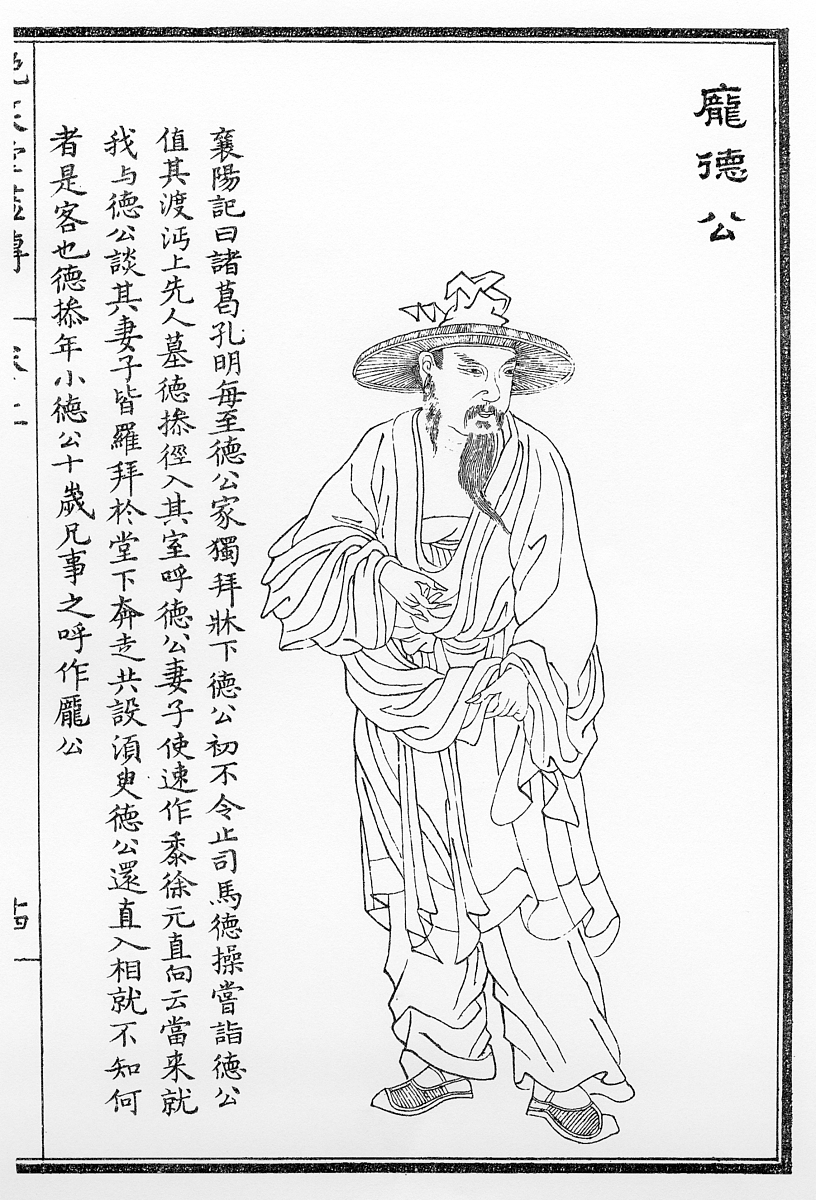 龐德公
襄陽記曰諸葛孔明每至德公家獨拜牀下德公初不令止司馬德操嘗詣德公
值其渡沔上先人墓德操徑入其室呼德公妻子使速作黍徐元直向云當来就
我与德公談其妻子皆羅拜於堂下奔走共設須臾德公還直入相就不知何
者是客也德操年小德公十歲兄事之呼作龐公